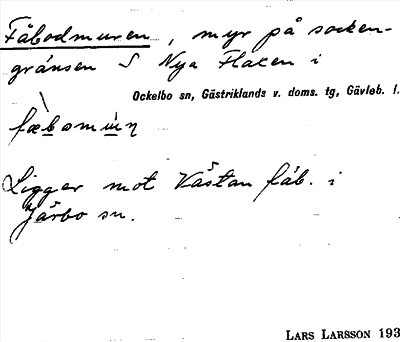 Fäbodmuren, myr på socken-
gränsen S Nya Flaxen i
Ockelbo sn, Gästriklands v. doms. tg, Gävleb. l.
Ligger mot Västan fäb. i
Järbo sn.
LARS LARSSON 193